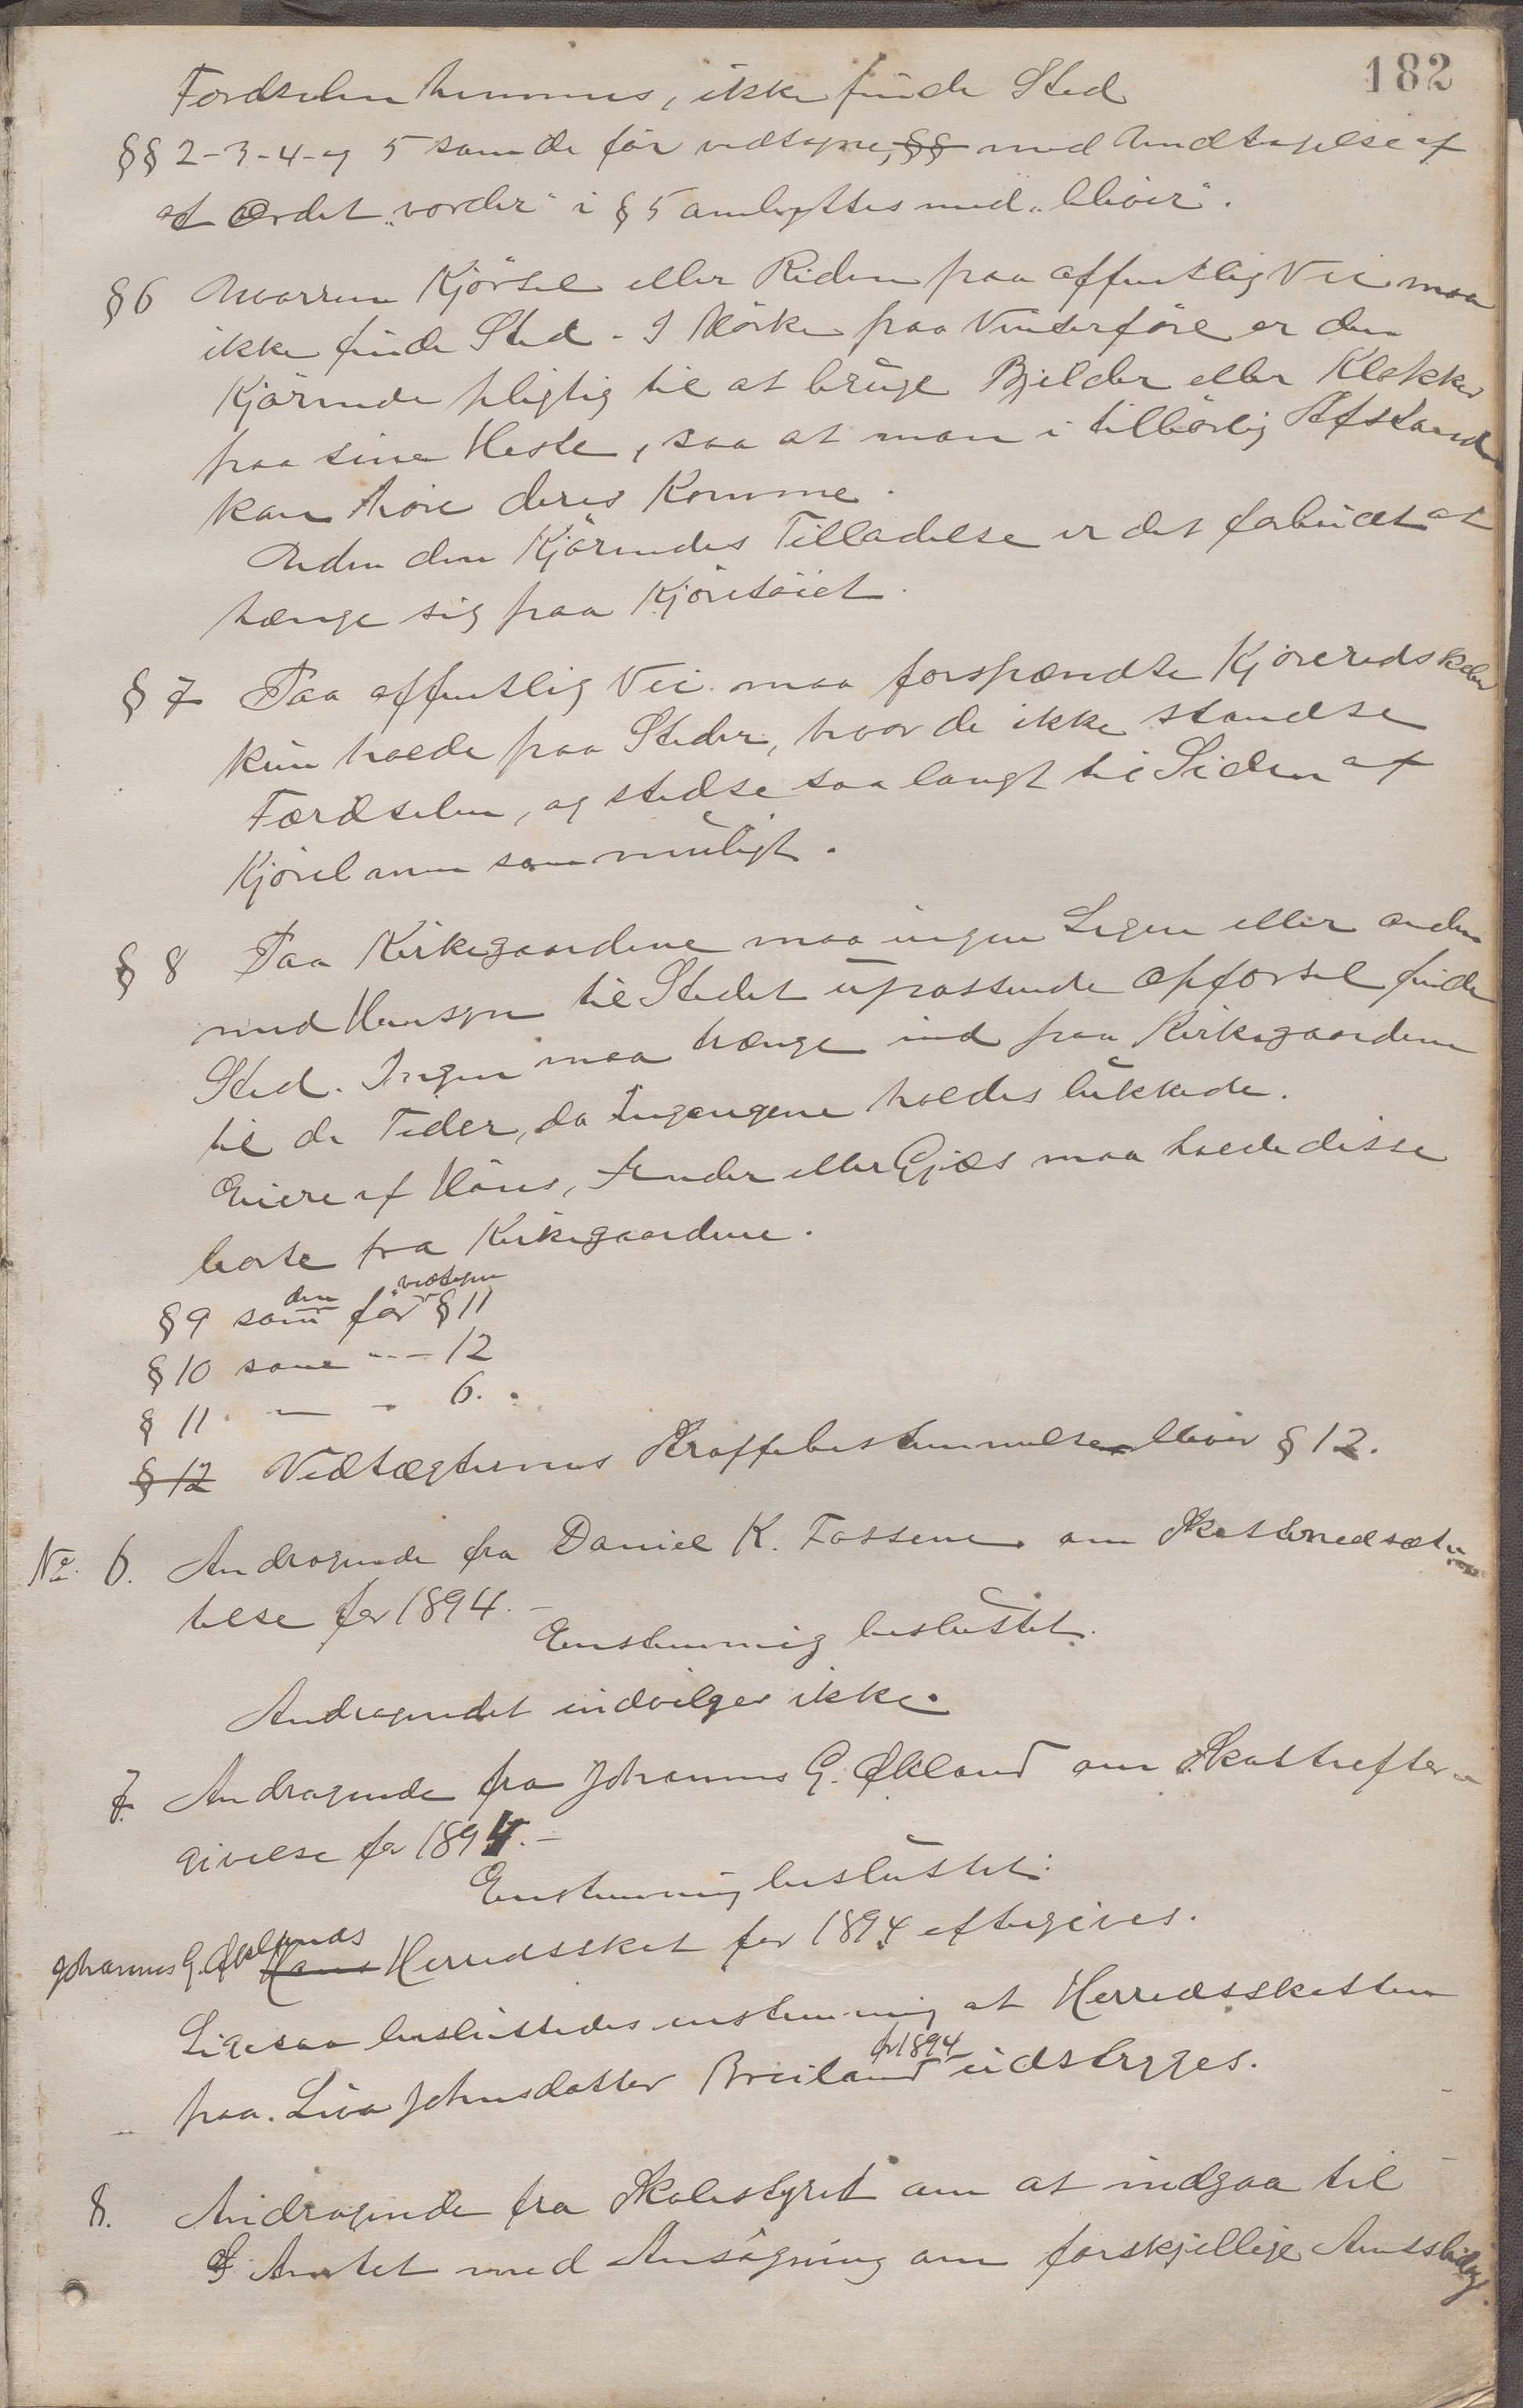 182
Færdselen hemmes, ikke finde Sted
§§ 2-3-4-og 5 som de før vedtagne, §§ med Undtagelse af
at Ordet „vorder“ i § 5 ombyttes med „bliver“.
§ 6 Uvorren Kjørsel eller Riden paa offentlig Vei maa
ikke finde Sted. I Mørke paa Vinterføre er den
Kjørende pligtig til at bruge Bjelder eller Klokker
paa sine Heste, saa at man i tilbørlig Afstand
kan høre deres Komme.
Uden den Kjørendes Tilladelse er det forbudt at
hænge sig paa Kjøretøiet.
§ 7 Paa offentlig Vei maa forspændte Kjøreredskaber
kun holde paa Steder, hvor de ikke standse
Færdselen, og stedse saa langt til Siden af
Kjørebanen som muligt.
§ 8 Paa Kirkegaardene maa ingen Legen eller anden
med Hensyn til Stedet upassende Opførsel finde
Sted. Ingen maa trænge ind paa Kirkegaardene
til de Tider, da Indgangene holdes lukkede.
Eiere af Høns, Ænder eller Gjæs maa holde disse
borte fra Kirkegaardene.
§ 9 som den før vedtagne § 11
§ 10 som -- - 12
§ 11 - - 6.
§ 12 Vedtægternes Straffebestemmelse bliver § 12.
No. 6. Andragende fra Daniel K. Fossene om Skattenedsæt-
telse for 1894.-
Enstemmig besluttet.
Andragendet indvilges ikke.
7. Andragende fra Johannes G. Økland om Skatteefter-
givelse for 1894.-
Enstemmig besluttet:
Johannes G. Øklands Hans Herredsskat for 1894 eftergives.
Ligesaa besluttedes enstemmig at Herredsskatten
paa Liva Johnsdatter Breiland for 1894 udstryges.
8. Andragende fra Skolestyret om at indgaa til
Amtet med Ansøgning om forskjellige Amtsbidrag.